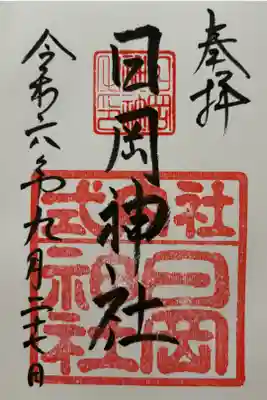 奉拝
日岡神社
令和六年九月二十七日
式 社
日岡
神社